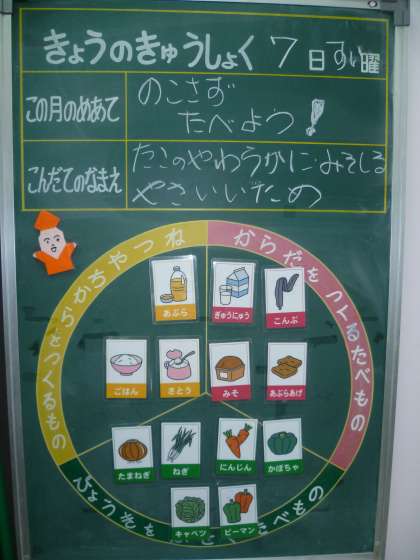 きょうのきゅうしょく 7日すい曜
この月のめあて
のこさず
たべよう!
こんだてのなまえ
たこのやわうかに・みそしる
やさいいため
ちからやねつをつくるもの
からだをつくるたべもの
あぶら
ぎゅうにゅう
こんぶ
ごはん
さとう
みそ
あぶらあげ
たまねぎ
ねぎ
にんじん
かぼちゃ
キャベツ
ピーマン